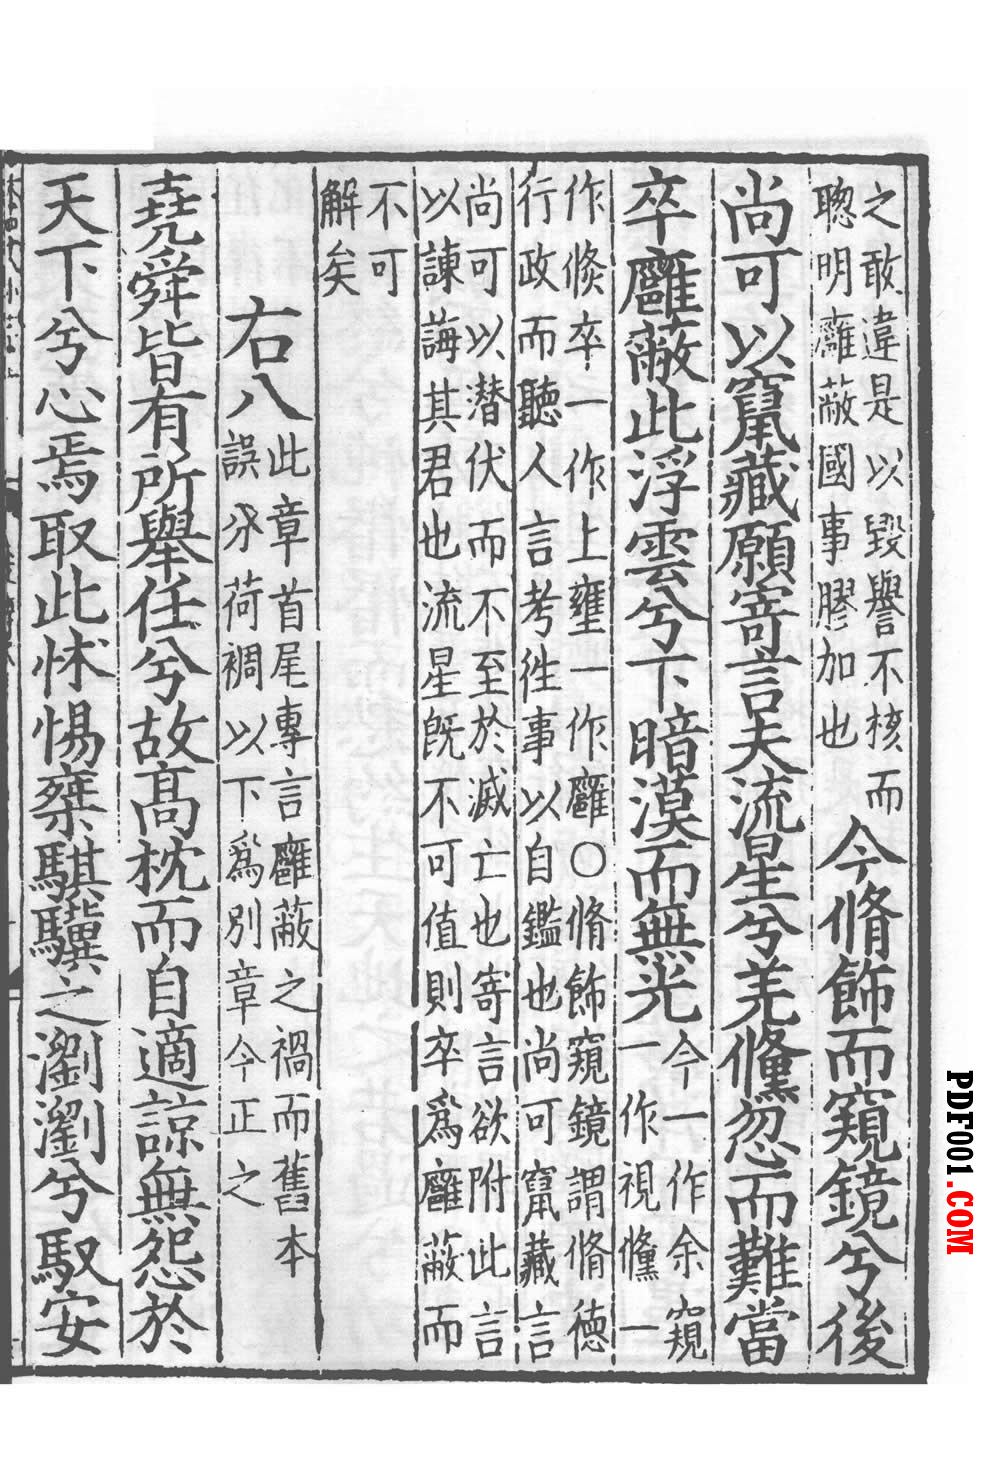 之敢違是以毀譽不核而
聰明廱蔽國事膠加也
今脩飾而窺鏡兮後
尚可以竄藏願寄言夫流星兮羌儵忽而難當
卒廱蔽此浮雲兮下暗漠而無光
今一作余窺
一作視儵一
作倏卒一作上壅一作廱○脩飾窺鏡謂脩德
行政而聽人言考徃事以自鑑也尚可竄藏言
尚可以潜伏而不至於滅亡也寄言欲附此言
以諫誨其君也流星旣不可值則卒爲廱蔽而
不可
解矣
右八
此章首尾專言廱蔽之禍而舊本
誤分荷裯以下爲別章今正之
堯舜皆有所舉任兮故高枕而自適諒無怨於
天下兮心焉取此怵惕椉騏驥之瀏瀏兮馭安
PDF001.COM